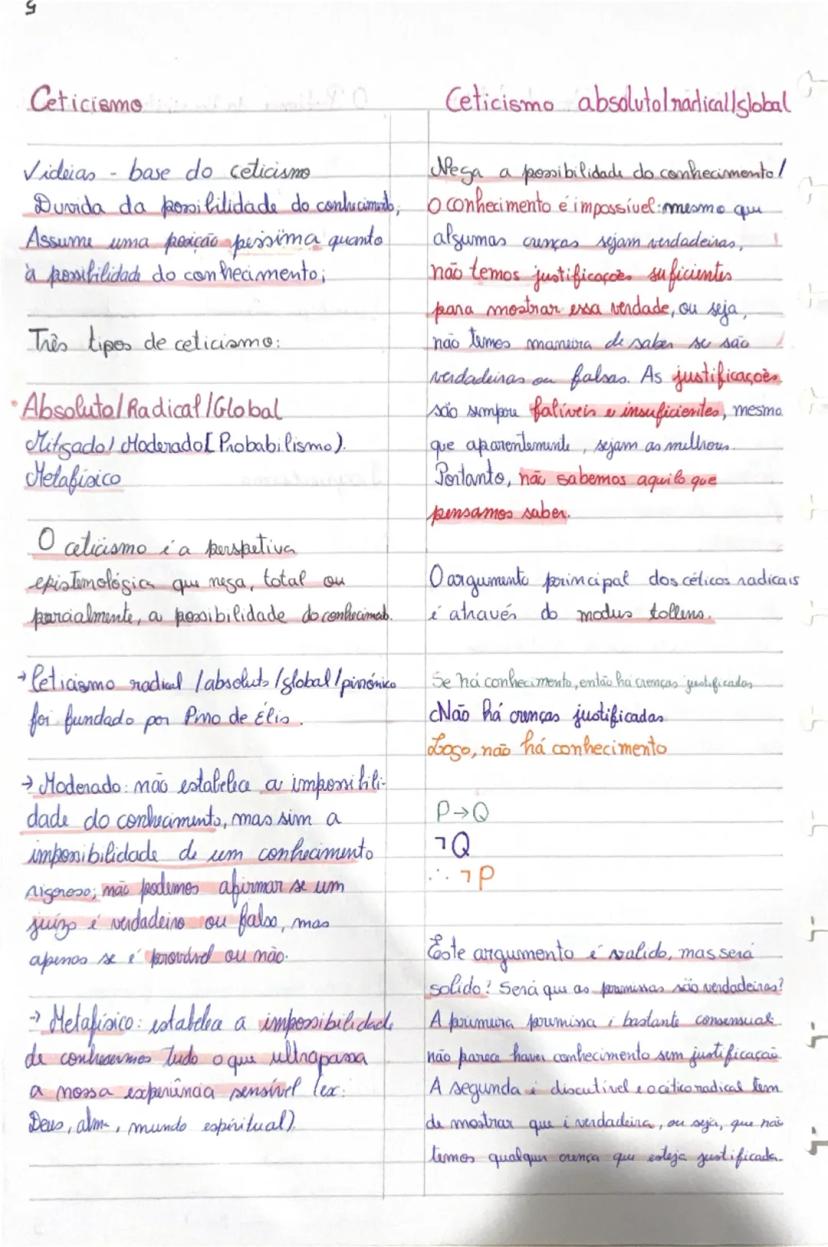 5
Ceticismo
V ideias - base do ceticismo
Duvida da possibilidade do conhecimento;
Assume uma posição péssima quanto
à possibilidade do conhecimento;
Três tipos de ceticismo:
• Absoluto/Radical/Global
Mitgado/Moderado[Probabilismo).
Metafísico
O ceticismo é a perspetiva
epistemológica que nega, total ou
parcialmente, a possibilidade do conhecimento.
→ Ceticismo radical/absoluto/global/pirrónico
foi fundado por Pirro de Élis.
→ Moderado: não estabelece a impossibili-
dade do conhecimento, mas sim a
impossibilidade de um conhecimento
rigoroso; não podemos afirmar se um
juízo é verdadeiro ou falso, mas
apenas se é provável ou não.
→ Metafísico: estabelece a impossibilidade
de conhecermos tudo o que ultrapassa
a nossa experiência sensível (ex:
Deus, alma, mundo espiritual)
Ceticismo absoluto/radical/global
Nega a possibilidade do conhecimento/
O conhecimento é impossível: mesmo que
algumas crenças sejam verdadeiras,
não temos justificações suficientes
para mostrar essa verdade, ou seja,
não temos maneira de saber se são
verdadeiras ou falsas. As justificações
são sempre falíveis e insuficientes, mesmo
que aparentemente, sejam as melhores.
Portanto, não sabemos aquilo que
pensamos saber.
O argumento principal dos céticos radicais
é através do modus tollens.
Se há conhecimento, então há crenças justificadas
Não há crenças justificadas
Logo, não há conhecimento
P→Q
¬Q
∴ ¬P
Este argumento é valido, mas será
solido? Será que as premissas são verdadeiras?
A primeira premissa é bastante consensual
não parece haver conhecimento sem justificação
A segunda é discutível e o cético radical tem
de mostrar que é verdadeira, ou seja, que não
temos qualquer crença que esteja justificada.